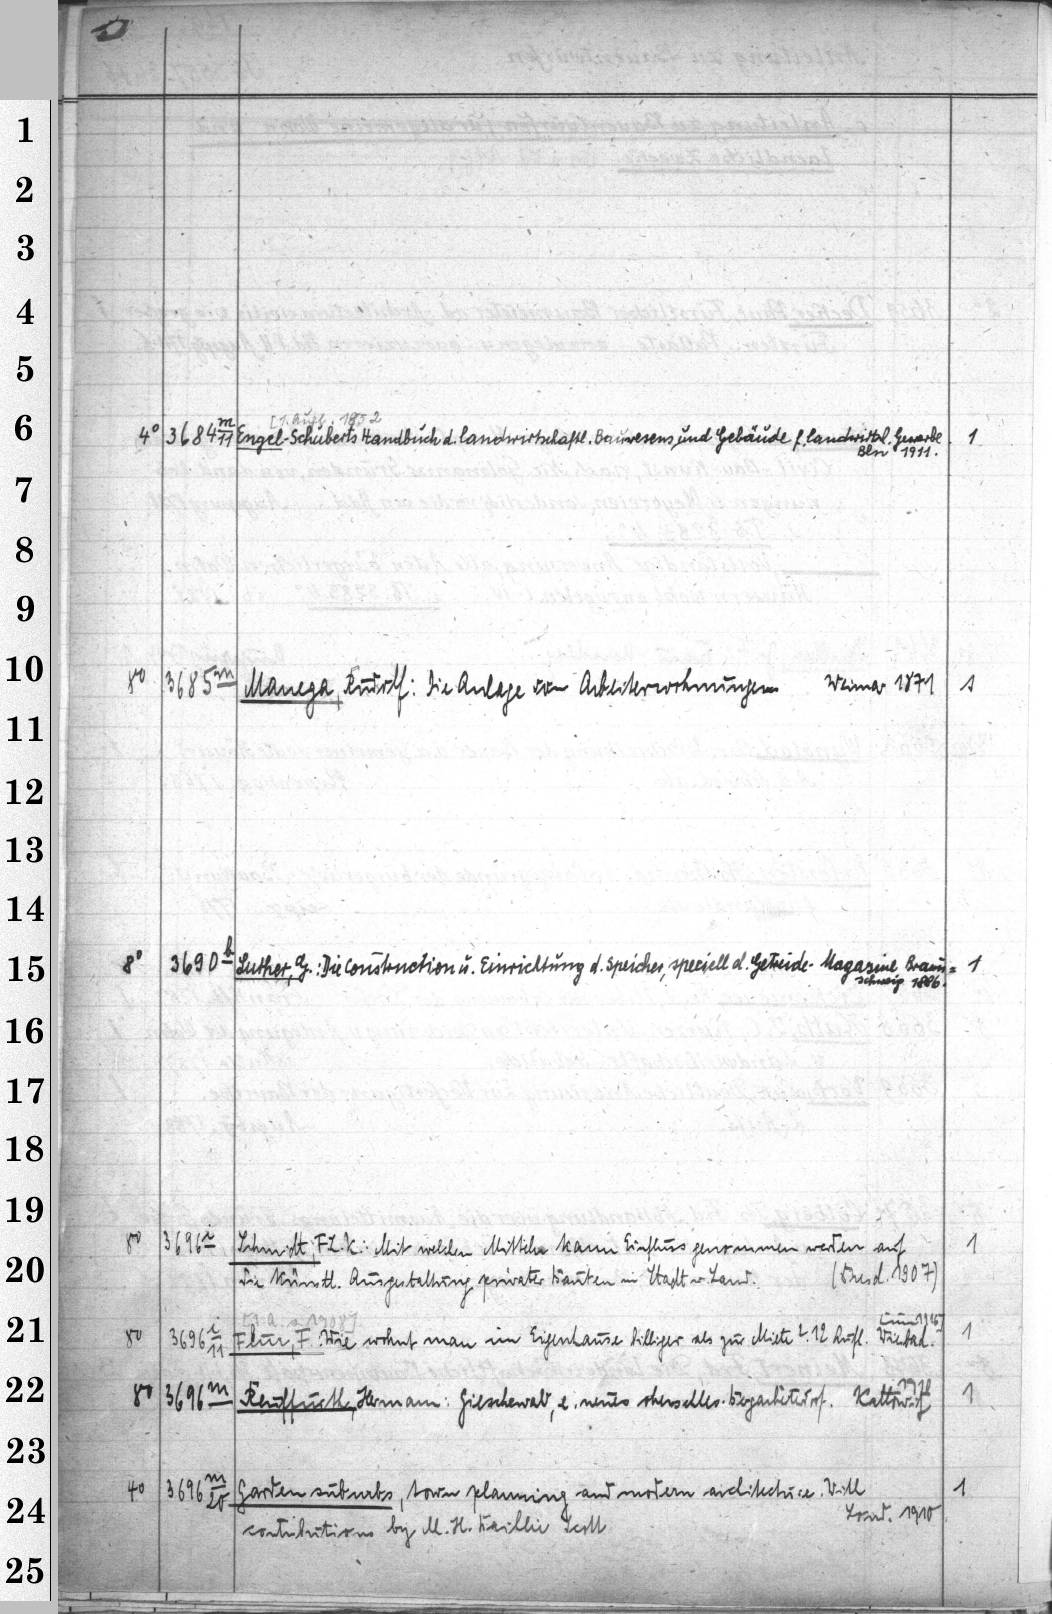 1
2
3
4
5
[1. Aufl. 1852
6
4° 3684 m/11 Engel-Schuberts Handbuch d. landwirtschaftl. Bauwesens und Gebäude f. landwirtschl. Gewerbe. 1
Bln 1911.
7
8
9
10
8° 3685 m Manega, Rudolf: Die Anlage von Arbeiterwohnungen Weimar 1871 1
11
12
13
14
15
8° 3690 b Luther, G.: Die Construction u. Einrichtung d. Speicher, speciell d. Getreide- Magazine Braun= 1
schweig 1886.
16
17
18
19
8° 3696 i Schmidt, F.L.K.: Mit welchen Mitteln kann Einfluss genommen werden auf 1
20
die künstl. Ausgestaltung privater Bauten in Stadt u. Land. (Dresd. 1907)
21
8° 3696 i/11 Flur, F. Wie wohnt man im Eigenhause billiger als zur Miete 2. 12 Aufl. Wiesbad. 1
22
8° 3696 m Reuffurth, Hermann: Gieschewald, e. neues oberschles. Bergarbeiterdorf. Kattowitz 1910 1
23
24
4° 3696 m/20 Garden suburbs, town planning and modern architecture. With 1
Lond. 1910
contributions by M. H. Baillie Scott
25